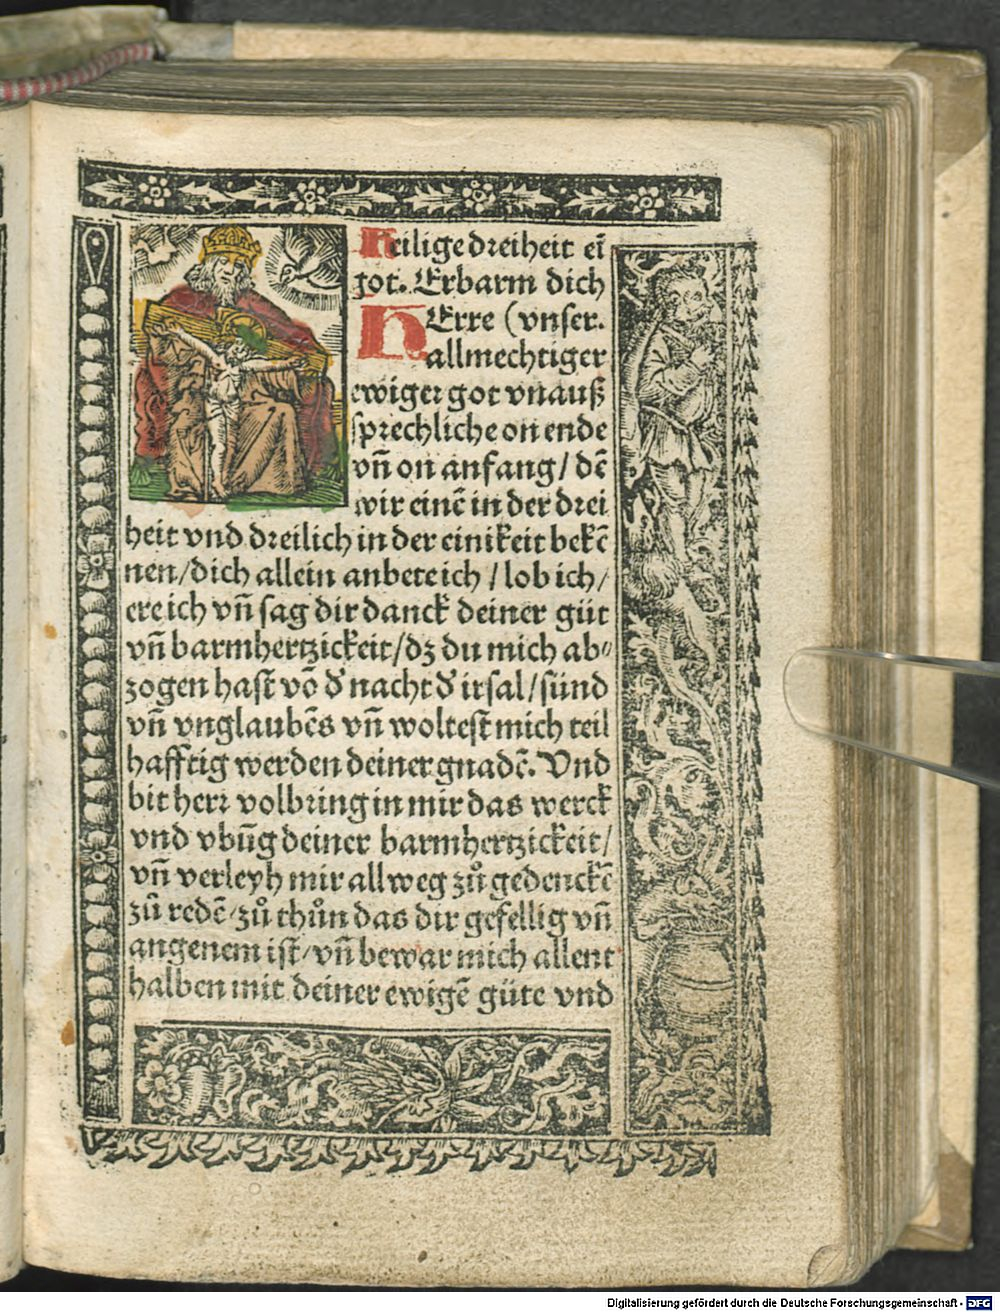 Heilige dreiheit eī
got. Erbarm dich
HErre (vnser.
allmechtiger
ewiger got vnauß
sprechliche on ende
vn̄ on anfang / dē
wir einē in der drei
heit vnd dreilich in der einikeit bekē
nen / dich allein anbete ich / lob ich /
ere ich vn̄ sag dir danck deiner güt
vn̄ barmhertzickeit / dz du mich ab⸗
zogen hast vō d̕ nacht d̕ irsal / sünd
vn̄ vnglaubēs vn̄ woltest mich teil
hafftig werden deiner gnadē. Vnd
bit herr volbring in mir das werck
vnd vbūg deiner barmhertzickeit /
vn̄ verleyh mir allweg zů gedenckē
zů redē / zů thůn das dir gefellig vn̄
angenem ist / vn̄ bewar mich allent
halben mit deiner ewigē güte vnd
Digitalisierung gefördert durch die Deutsche Forschungsgemeinschaft - DFG